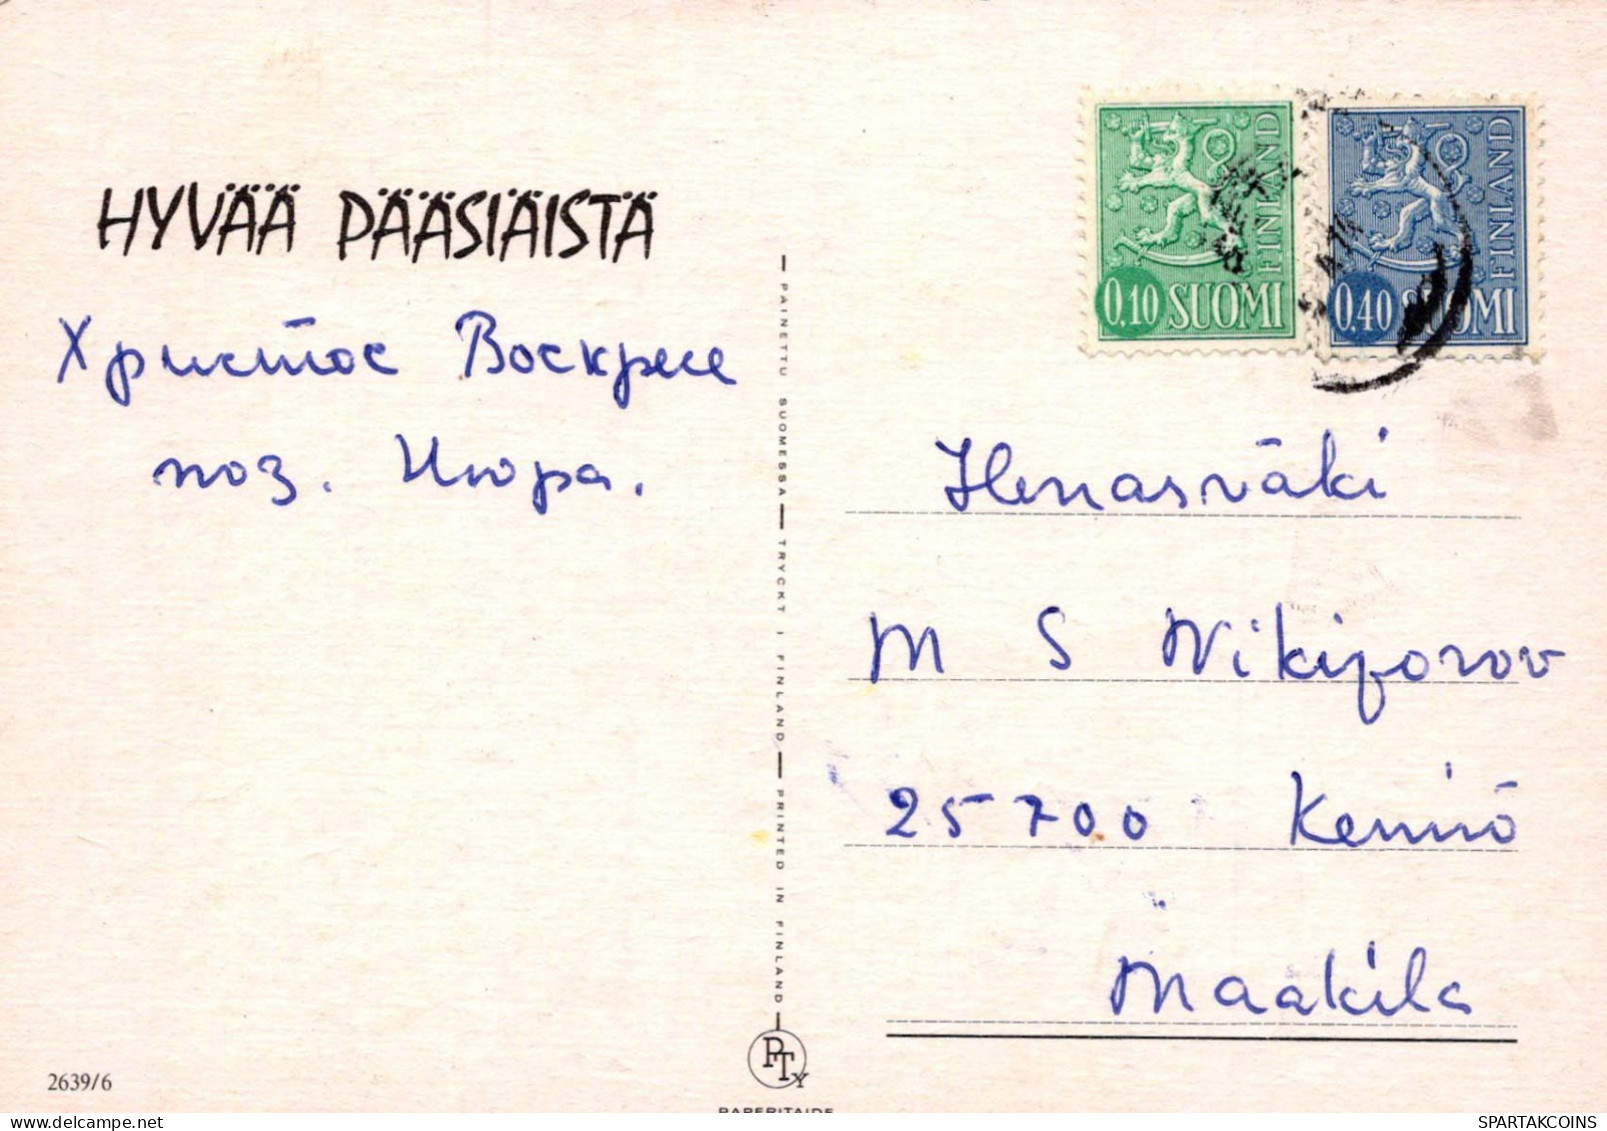 HYVÄÄ PÄÄSIÄISTÄ
Христос Воскресе
поз. Июра.
0,10 SUOMI
FINLAND
0,40 SUOMI
FINLAND
PAINETTU SUOMESSA — TRYCKT I FINLAND — PRINTED IN FINLAND
M S Nikiforov
25700 Kemiö
Maakila
2639/6
PTY
PAPERITAIDE
SPARTAKCOINS